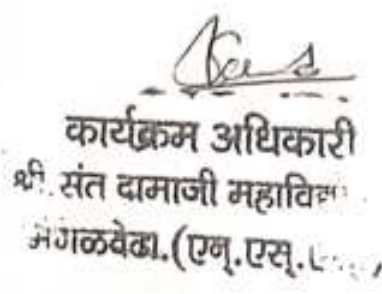 कार्यक्रम अधिकारी
श्री. संत दामाजी
मंगळवेढा.(एन्.एस्.